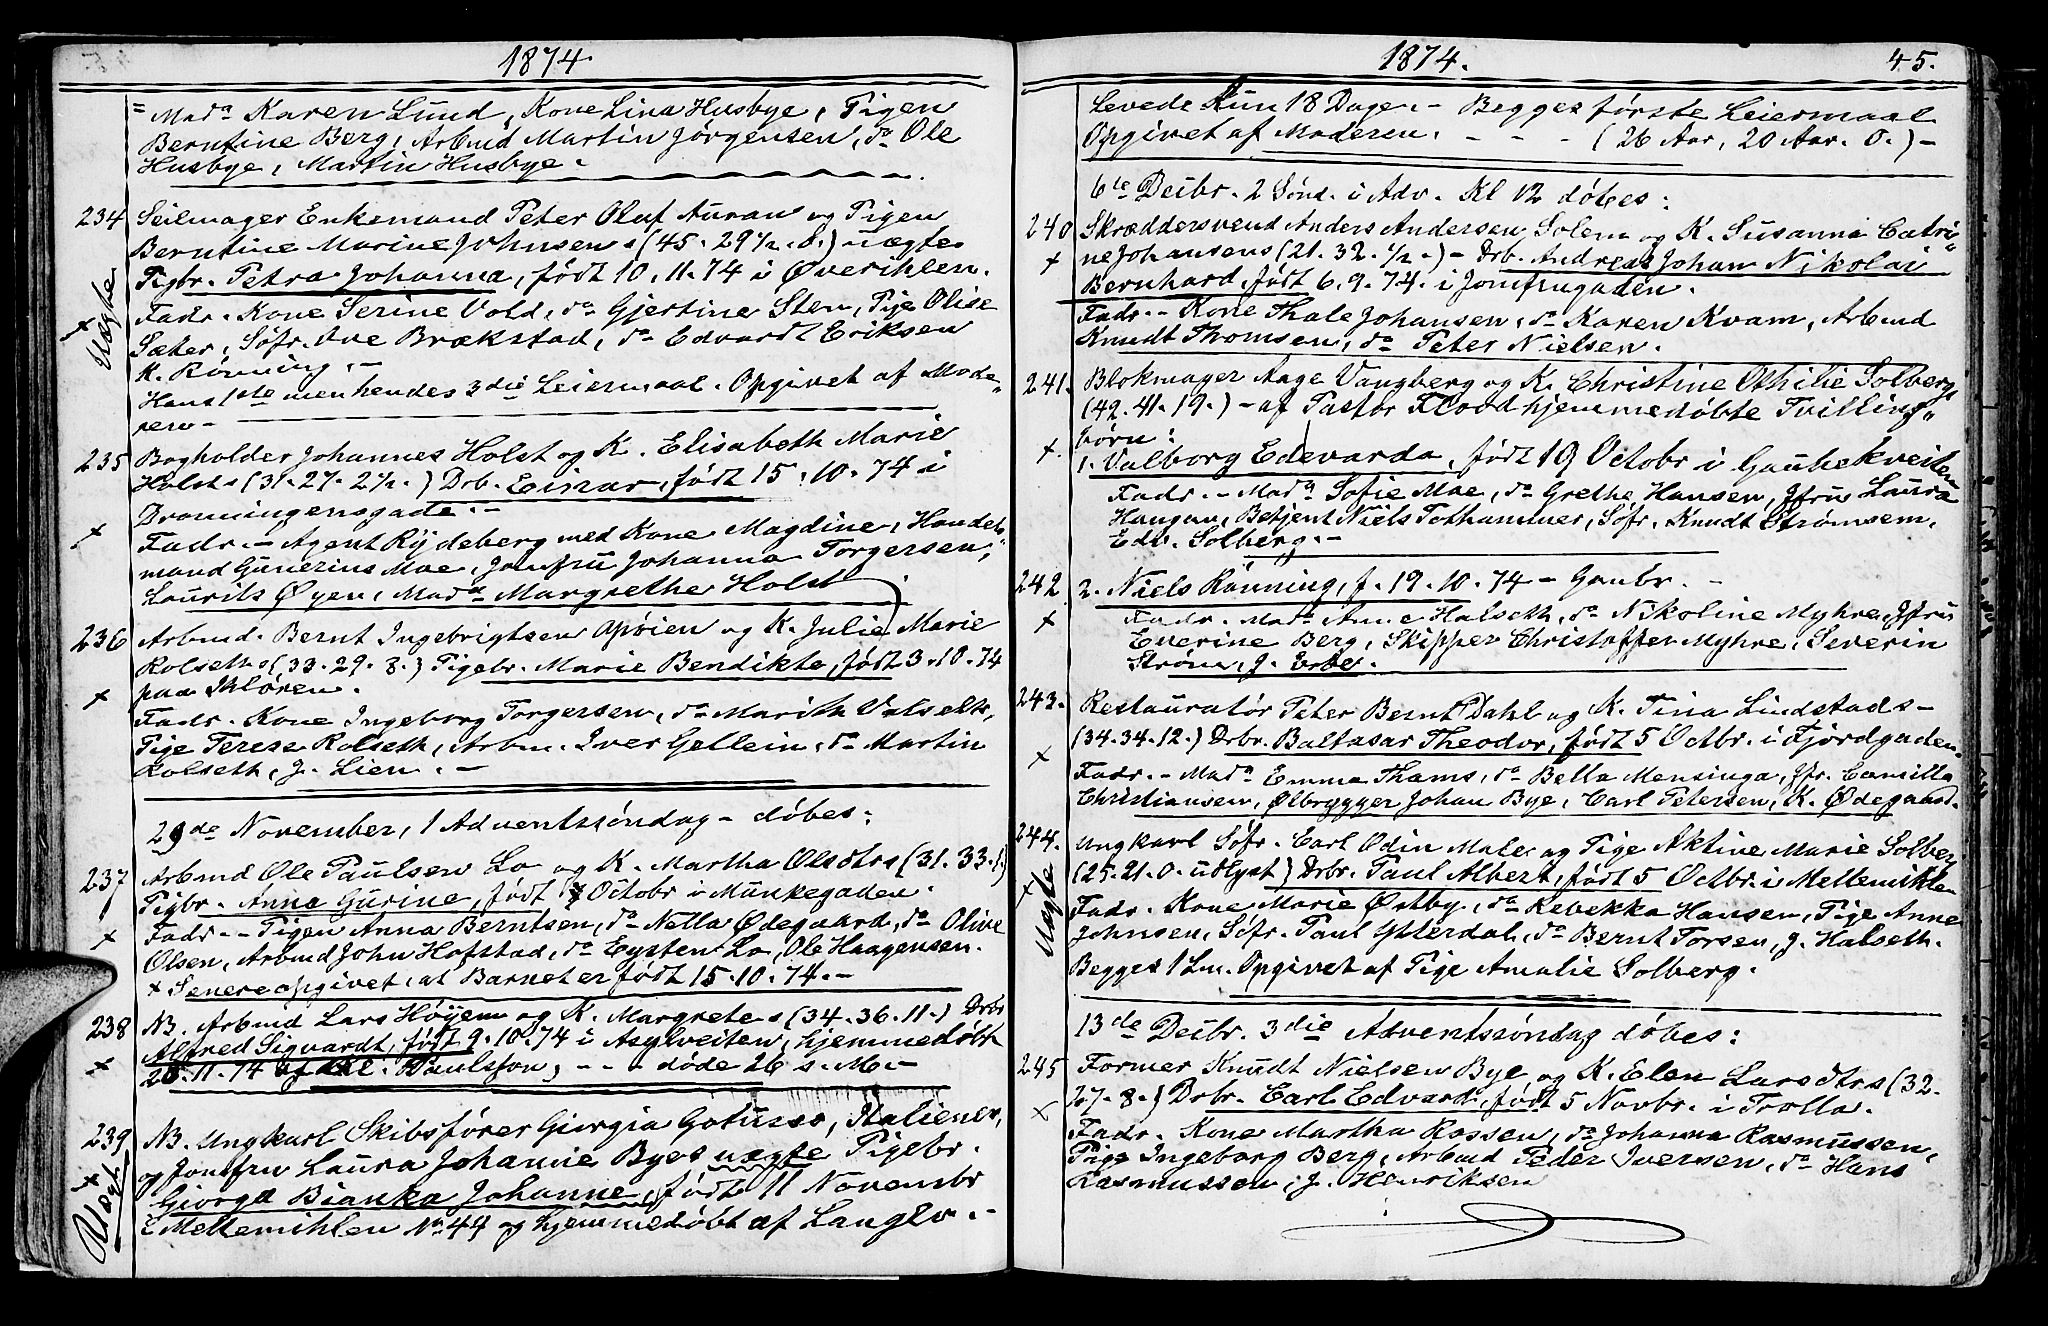 1874
= Mad<sup>a</sup> Karen Lund, Kone Lina Husbye, Pigen
Berntine Berg, Arbmd Martin Jörgensen, d<sup>o</sup> Ole
Husbye, Martin Husbye.
234 Seilmager Enkemand Peter Oluf Auran og Pigen
Berntine Marine Johnsens (45. 29 1/2. 8.) uægte
Pigbr. Petra Johanna, født 10. 11. 74 i Øverihlen.
Uægte
Fadr. Kone Serine Vold, d<sup>o</sup> Gjertine Sten, Pige Olise
× Sæter, Söfr. Ove Brækstad, d<sup>o</sup> Edvardt Eriksen
K. Rönning. -
Hans 1ste men hendes 3die Leiermaal. Opgivet af Mode„
ren -
235 Bogholder Johannes Holst og K. Elisabeth Marie
Holsts (31. 27. 2 1/2.) Drb. Einar, født 15. 10. 74 i
Dronningensgade. -
× Fadr. - Agent Rydeberg med Kone Magdine, Handels„
mand Gunerius Moe, Jomfru Johanna Torgersen,
Laurits Øyen, Mad<sup>a</sup> Margrethe Holst
236 Arbmd. Bernt Ingebrigtsen Opöien og K. Julie Marie
Rolseths (33. 29. 8.) Pigebr. Marie Bendikte, født 3. 10. 74
× paa Ihlören.
Fadr. Kone Ingeborg Torgersen, d<sup>o</sup> Marith Valseth,
Pige Terese Rolseth, Arbm. Iver Gellein, d<sup>o</sup> Martin
Rolseth, J. Lien. -
29de November, 1 Adventssöndag - döbes:
237 Arbmd Ole Paulsen Lo og K. Martha Olsdtrs (31. 33. 1.)
Pigbr. Anna Gurine, født × Octobr i Munkegaden.
× Fadr. - Pigen Anna Berntsen, d<sup>o</sup> Nella Ødegaard, d<sup>o</sup> Olive
Olsen, Arbmd John Hofstad, d<sup>o</sup> Eysten Lo, Ole Haagensen.
× Senere opgivet, at Barnet er født 15. 10. 74. -
238 NB. Arbmd Lars Höyem og K. Margretes (34. 36. 11.) Drbr
Alfred Sigvardt, født 9. 10. 74 i Asylveiten, hjemmedöbt
× 20. 11. 74 af Paulsson, - - - döde 26 s. M. -
239 NB. Ungkarl Skibsförer Giorgia Gotusso, Italiener,
× og Jomfru Laura Johanne Byes uægte Pigebr.
Uægt
Giorga Bianka Johanne, født 11 Novembr
i Mellemihlen No 44 og hjemmedöbt af Langlo. -
1874.
45.
Levede kun 18 Dage. - Begges første Leiermaal
Opgivet af Moderen. - - - (26 Aar, 20 Aar. 0.) -
6te Decbr. 2 Sönd. i Adv. Kl 12 döbes:
240 Skræddersvend Anders Andersen Solem og K. Susanna Catri„
× ne Johansens (21. 32. 1/2.) - Drb. Andreas Johan Nikolai
Bernhard, født 6. 9. 74. i Jomfrugaden.
Fadr. - Kone Thale Johansen, d<sup>o</sup> Karen Kvam, Arbmd
Knudt Thomsen, d<sup>o</sup> Peter Nielsen.
241. Blokmager Aage Vangberg og K. Christine Othilie Solberg
(42. 41. 19.) - af Pastor Flood hjemmedöbte Tvilling„
×. börn:
1. Valborg Edevarda, født 19 Octobr i Gaubekveiten
Fadr. - Mad<sup>a</sup> Sofie Moe, d<sup>o</sup> Grethe Hansen, Jfru Laura
Haugan, Betjent Niels Tothammer, Söfr. Knudt Strömsem,
Edv. Solberg. -
242. 2. Niels Rönning, f. 19. 10. 74 - Gaubr. -
× Fadr. Mad<sup>a</sup> Anne Halseth, d<sup>o</sup> Nikoline Myhre, Jfru
Everine Berg, Skipper Christoffer Myhre, Severin
Ström, J. Erbe.
243. Restauratör Peter Bernt Dahl og K. Tina Lindstads -
(34. 34. 12.) Drbr. Baltasar Theodor, født 5 Octbr. i Fjordgaden.
× Fadr. - Mad<sup>a</sup> Emma Thams, d<sup>o</sup> Bella Mensinga, Jfr. Camilla
Christiansen, Ølbrygger Johan Bye, Carl Petersen, K. Ødegaard.
244. Ungkarl Söfr. Carl Odin Male og Pige Aktine Marie Solberg
(25. 21. 0. udlyst) Drbr. Paul Albert, født 5 Octbr. i Mellemihlen
× Fadr. Kone Marie Østby, d<sup>o</sup> Rebekka Hansen, Pige Anne
Uægte
Johnsen, Söfr. Paul Ytterdal, d<sup>o</sup> Bernt Torsen, J. Halseth.
Begges 1 Lm. Opgivet af Pige Amalie Solberg.
13de Decbr. 3die Adventssöndag döbes:
245 Former Knudt Nielsen Bye og K. Elen Larsdtrs (32.
27. 8.) Drbr. Carl Edvard, født 5 Novbr. i Trolla.
× Fadr. Kone Martha Rossen, d<sup>o</sup> Johanna Rasmussen,
Pige Ingeborg Berg, Arbmd Peder Iversen, d<sup>o</sup> Hans
Rasmussen, J. Henriksen